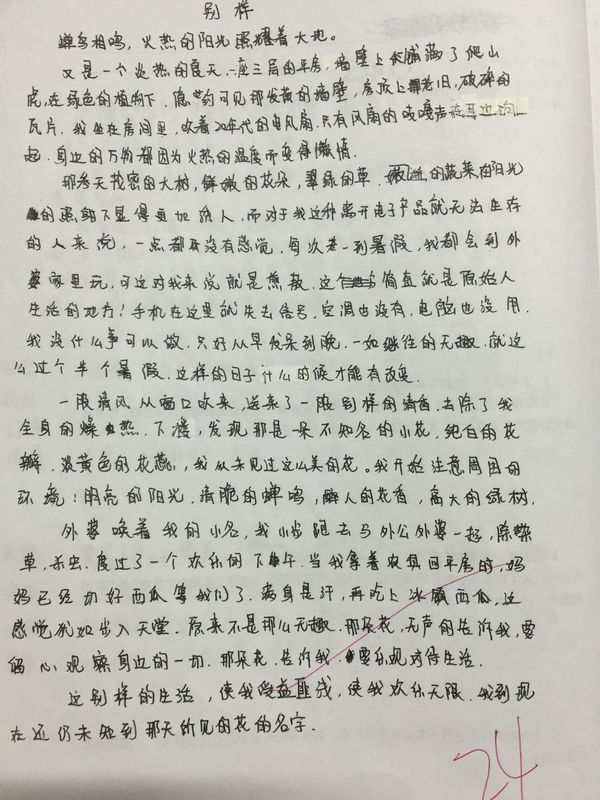 别样
蝉鸟相鸣，火热的阳光照耀着大地。
又是一个炎热的夏天，一座三层的平房，墙壁上伏满了爬山
虎，在绿色的植物下，隐约可见那发黄的墙壁，房顶上老旧、破碎的
瓦片。我坐在房间里，吹着20年代的电风扇，只有风扇的吱嘎声在耳边响
起。身边的万物都因为火热的温度而变得慵惰。
那参天茂密的大树，鲜嫩的花朵，翠绿的草，的蔬菜在阳光
的照射下显得更加绣人，而对于我这种离开电子产品就无法生存
的人来说，一点都没有感觉。每次老一到暑假，我都会到外
婆家里玩，可这对我来说就是煎熬。这简直就是原始人
生活的地方！手机在这里就失去信号，空调也没有，电脑也没用。
我没什么事可以做，只好从早发呆到晚，一如继往的无趣，就这
么过个半个暑假，这样的日子什么的候才能有改变。
一股清风从窗口吹来，送来了一股别样的清香，去除了我
全身的燥热。下楼，发现那是一朵不知名的小花，纯白的花
瓣，淡黄色的花蕊，我从未见过这么美的花。我开始注意周围的
环境：明亮的阳光，清脆的蝉鸣，醉人的花香，高大的绿树。
外婆唤着我的小名，我小步跑去与外公外婆一起，除
草，杀虫，度过了一个欢乐的下午。当我拿着农具回平房时，妈
妈已经切好西瓜等我们了。满身是汗，再吃上冰西瓜，这
感觉犹如步入天堂。原来不是那么无趣。那朵花，无声的告诉我，要
细心观察身边的一切。那朵花，告诉我，要乐观对待生活。
这别样的生活，使我受益匪浅，使我欢乐无限。我到现
在还仍未知到那天所见的花的名字。
24